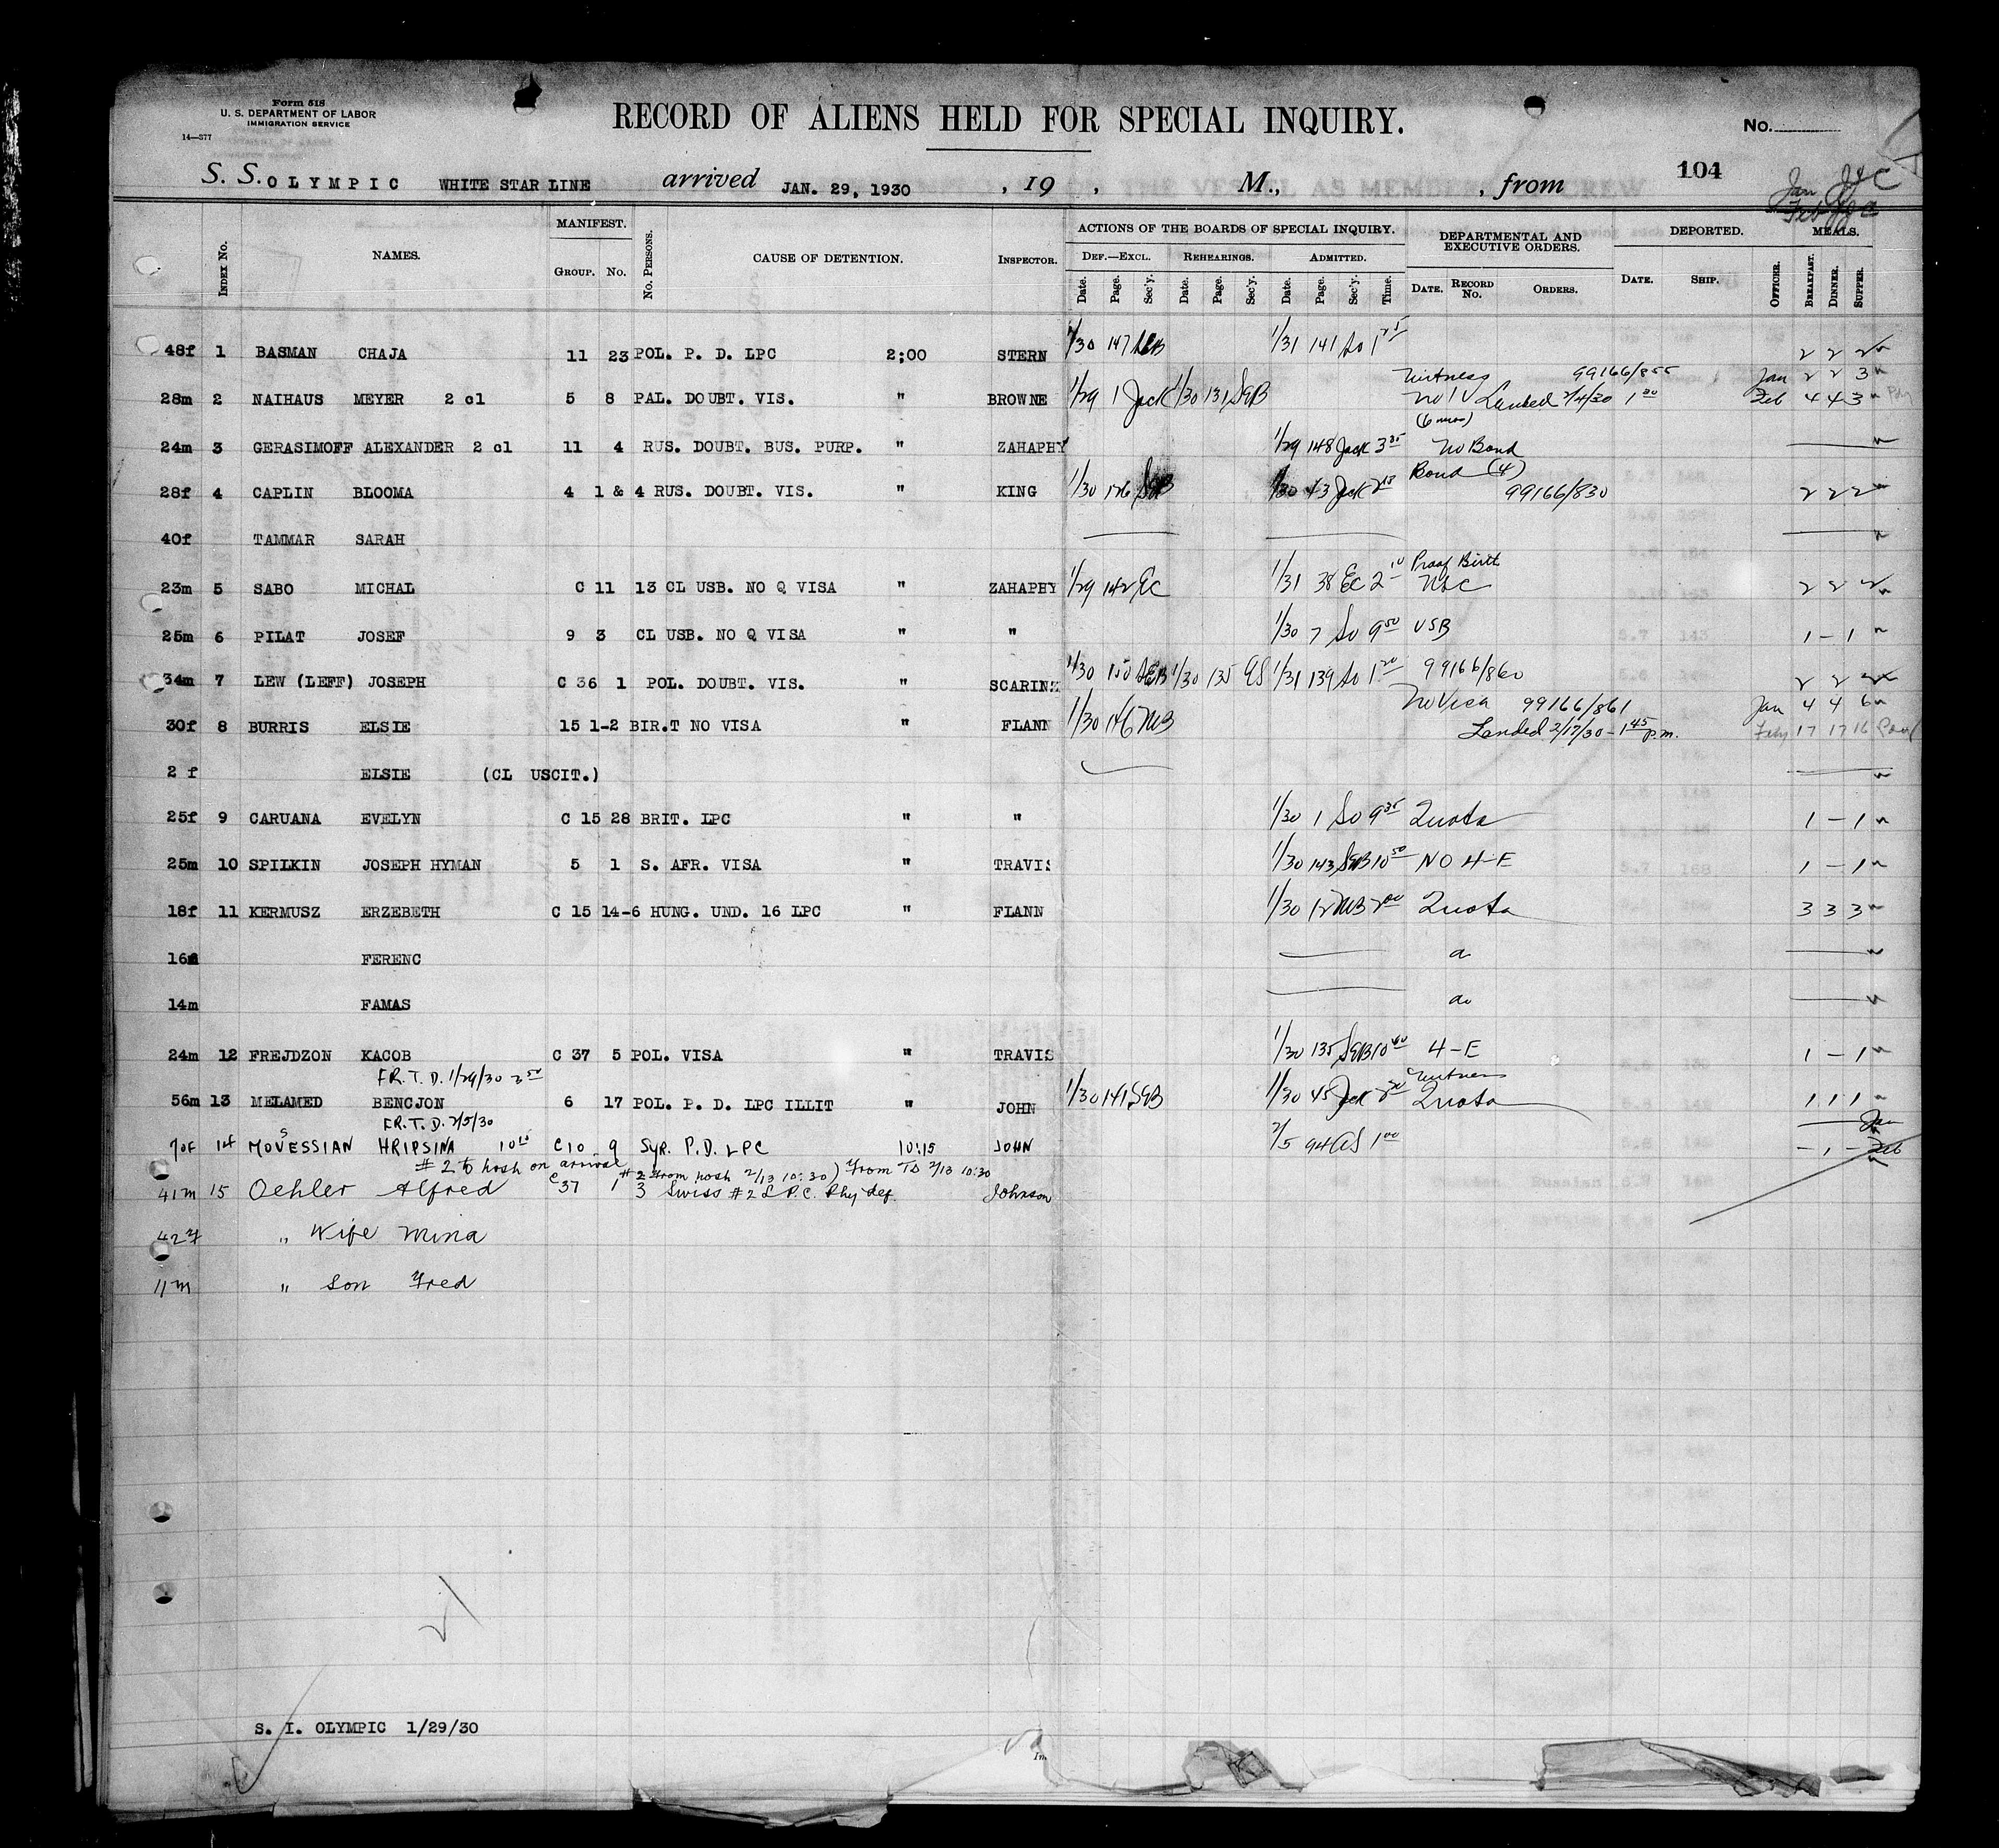 Form 518
U. S. DEPARTMENT OF LABOR
IMMIGRATION SERVICE
14—377
RECORD OF ALIENS HELD FOR SPECIAL INQUIRY.
No.
104
S. S. OLYMPIC WHITE STAR LINE arrived JAN. 29, 1930 , 19 , M., , from
Jan
Feb
INDEX No. NAMES. MANIFEST. GROUP. No. No. PERSONS. CAUSE OF DETENTION. INSPECTOR.
ACTIONS OF THE BOARDS OF SPECIAL INQUIRY. DEPARTMENTAL AND EXECUTIVE ORDERS. DEPORTED. MEALS.
DEF.—EXCL. REHEARINGS. ADMITTED.
Date. Page. Sec'y. Date. Page. Sec'y. Date. Page. Sec'y. Time. DATE. RECORD No. ORDERS. DATE. SHIP. OFFICER. BREAKFAST. DINNER. SUPPER.
48f 1 BASMAN CHAJA 11 23 POL. P. D. LPC 2;00 STERN 1/30 147 1/31 141 So 2 2 2
Witness 99166/855 Jan 2 2 3
28m 2 NAIHAUS MEYER 2 cl 5 8 PAL. DOUBT. VIS. " BROWNE 1/29 1 Jack 1/30 131 SEB No IV Landed 2/4/30 1 30 Feb 4 4 3
(6 mos)
24m 3 GERASIMOFF ALEXANDER 2 cl 11 4 RUS. DOUBT. BUS. PURP. " ZAHAPHY 1/29 148 Jack 3 35 No Bond
Bond (4)
28f 4 CAPLIN BLOOMA 4 1 & 4 RUS. DOUBT. VIS. " KING 1/30 126 SEB 1/30 43 Jack 99166/830 2 2 2
40f TAMMAR SARAH
Proof Birth
23m 5 SABO MICHAL C 11 13 CL USB. NO Q VISA " ZAHAPHY 1/29 142 EC 1/31 38 EC 2 10 2 2 2
25m 6 PILAT JOSEF 9 3 CL USB. NO Q VISA " " 1/30 7 So 9 50 USB 1 - 1
34m 7 LEW (LEFF) JOSEPH C 36 1 POL. DOUBT. VIS. " SCARIN 1/30 150 SEB 1/30 135 1/31 139 So 1 20 99166/860 2 2 2
No Visa 99166/861 Jan 4 4 6
30f 8 BURRIS ELSIE 15 1-2 BIR.T NO VISA " FLANN 1/30 146 MB Landed 2/17/30 - 1 45 p.m. Feby 17 17 16
2 f ELSIE (CL USCIT.)
25f 9 CARUANA EVELYN C 15 28 BRIT. LPC " " 1/30 1 So 9 35 Quota 1 - 1
25m 10 SPILKIN JOSEPH HYMAN 5 1 S. AFR. VISA " TRAVIS 1/30 143 SEB 10 50 NO 4-E 1 - 1
18f 11 KERMUSZ ERZEBETH C 15 14-6 HUNG. UND. 16 LPC " FLANN 1/30 12 MB 2 00 Quota 3 3 3
16m FERENC
14m FAMAS
24m 12 FREJDZON KACOB C 37 5 POL. VISA " TRAVIS 1/30 135 SEB 10 4-E 1 - 1
FR. T. D. 1/29/30 3 50
Witness
56m 13 MELAMED BENCJON 6 17 POL. P. D. LPC ILLIT " JOHN 1/30 141 SEB 1/30 45 Jack Quota 1 1 1
FR. T. D. 2/5/30
Jan
70f 14 MOVSESSIAN HRIPSINA 10 15 C10 9 SYR. P.D. LPC 10:15 JOHN 2/5 94 1 00 - 1 - Feb
# 2 to hosp on arrival # 2 from hosp 2/13 10:30) From TD 2/13 10:30
41m 15 Oehler Alfred C 37 1 3 Swiss # 2 L.P.C. Phy def. Johnson
42f " Wife Mina
11m " Son Fred
S. I. OLYMPIC 1/29/30